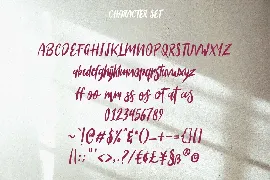 CHARACTER SET
ABCDEFGHIJKLMNOPQRSTUVWXYZ
abcdefghijklmnopqrstuvwxyz
tt oo mm ss os of at as
0123456789
~!@#$%^&*()_+-={}[]
|\:;"'<>,.?/€¢£¥§ß®©